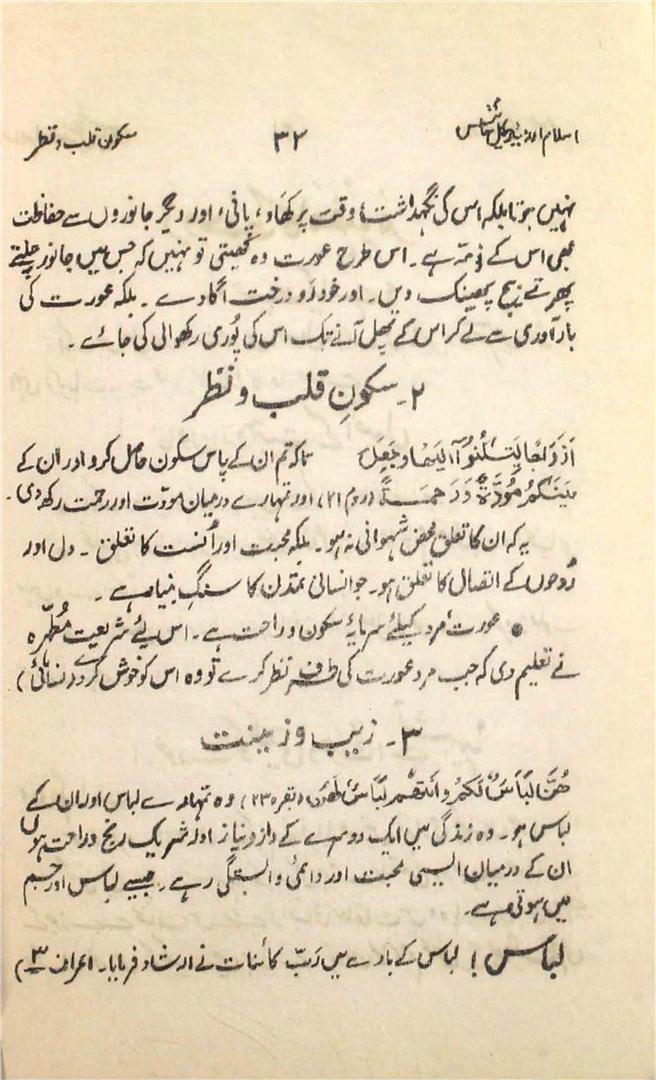 اسلام اور ۳۲ سکون قلب و نظر
نہیں ہوتا بلکہ اس کی نگہداشت، وقت پر کھاد، پانی، اور دیگر جانوروں سے حفاظت
بھی اس کے ذمہ ہے۔ اس طرح عورت وہ کھیتی تو نہیں کہ جس میں جانور چلتے
پھرتے بیج پھینک دیں۔ اور خود رَو درخت اگا دے۔ بلکہ عورت کی
بارآوری سے لے کر اس کے پھل آنے تک اس کی پُوری رکھوالی کی جائے۔
۲۔ سکونِ قلب و نظر
اَزْوَاجًا لِّتَسْكُنُوْٓا اِلَيْهَا وَجَعَلَ تاکہ تم ان کے پاس سکون حاصل کرو اور ان کے
بَيْنَكُمْ مَّوَدَّةً وَّرَحْمَةً (روم ۲۱) اور تمہارے درمیان مودّت اور رحمت رکھ دی۔
یہ کہ ان کا تعلق محض شہوانی نہ ہو۔ بلکہ محبت اور اُنست کا تعلق۔ دل اور
رُوحوں کے اتصال کا تعلق ہو۔ جو انسانی تمدن کا سنگِ بنیاد ہے۔
● عورت مرد کیلئے سرمایۂ سکون و راحت ہے۔ اس لئے شریعت مُطہّرہ
نے تعلیم دی کہ جب مرد عورت کی طرف نظر کرے تو وہ اس کو خوش کر دے (نسائی)
۳۔ زیب و زینت
هُنَّ لِبَاسٌ لَّكُمْ وَاَنْتُمْ لِبَاسٌ لَّهُنَّ (بقرہ ۲۳) وہ تمہارے لباس اور ان کے
لباس ہو۔ وہ زندگی میں ایک دوسرے کے راز و نیاز اور شریک رنج و راحت ہوں
ان کے درمیان ایسی محبت اور دائمی وابستگی رہے۔ جیسے لباس اور جسم
میں ہوتی ہے۔
لباس! لباس کے بارے میں رَبّ کائنات نے ارشاد فرمایا۔ اعراف ۳)